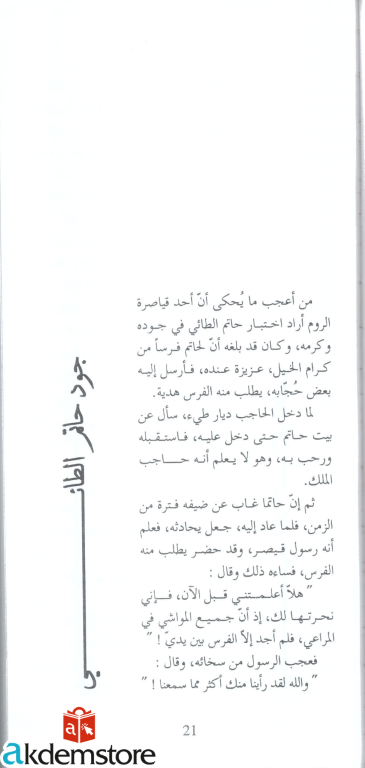 جود حاتم الطائـــــــي
من أعجب ما يُحكى أنّ أحد قياصرة
الروم أراد اختبار حاتم الطائي في جوده
وكرمه، وكان قد بلغه أنّ لحاتم فرساً من
كرام الخيل، عزيزة عنده، فأرسل إليه
بعض حُجّابه، يطلب منه الفرس هدية.
لما دخل الحاجب ديار طيء، سأل عن
بيت حاتم حتى دخل عليه، فاستقبله
ورحب به، وهو لا يعلم أنه حاجب
الملك.
ثم إنّ حاتما غاب عن ضيفه فترة من
الزمن، فلما عاد إليه، جعل يحادثه، فعلم
أنه رسول قيصر، وقد حضر يطلب منه
الفرس، فساءه ذلك وقال :
" هلاّ أعلمتني قبل الآن، فإني
نحرتها لك، إذ أنّ جميع المواشي في
المراعي، فلم أجد إلاّ الفرس بين يديّ ! "
فعجب الرسول من سخائه، وقال :
"والله لقد رأينا منك أكثر مما سمعنا ! "
21
akdemstore